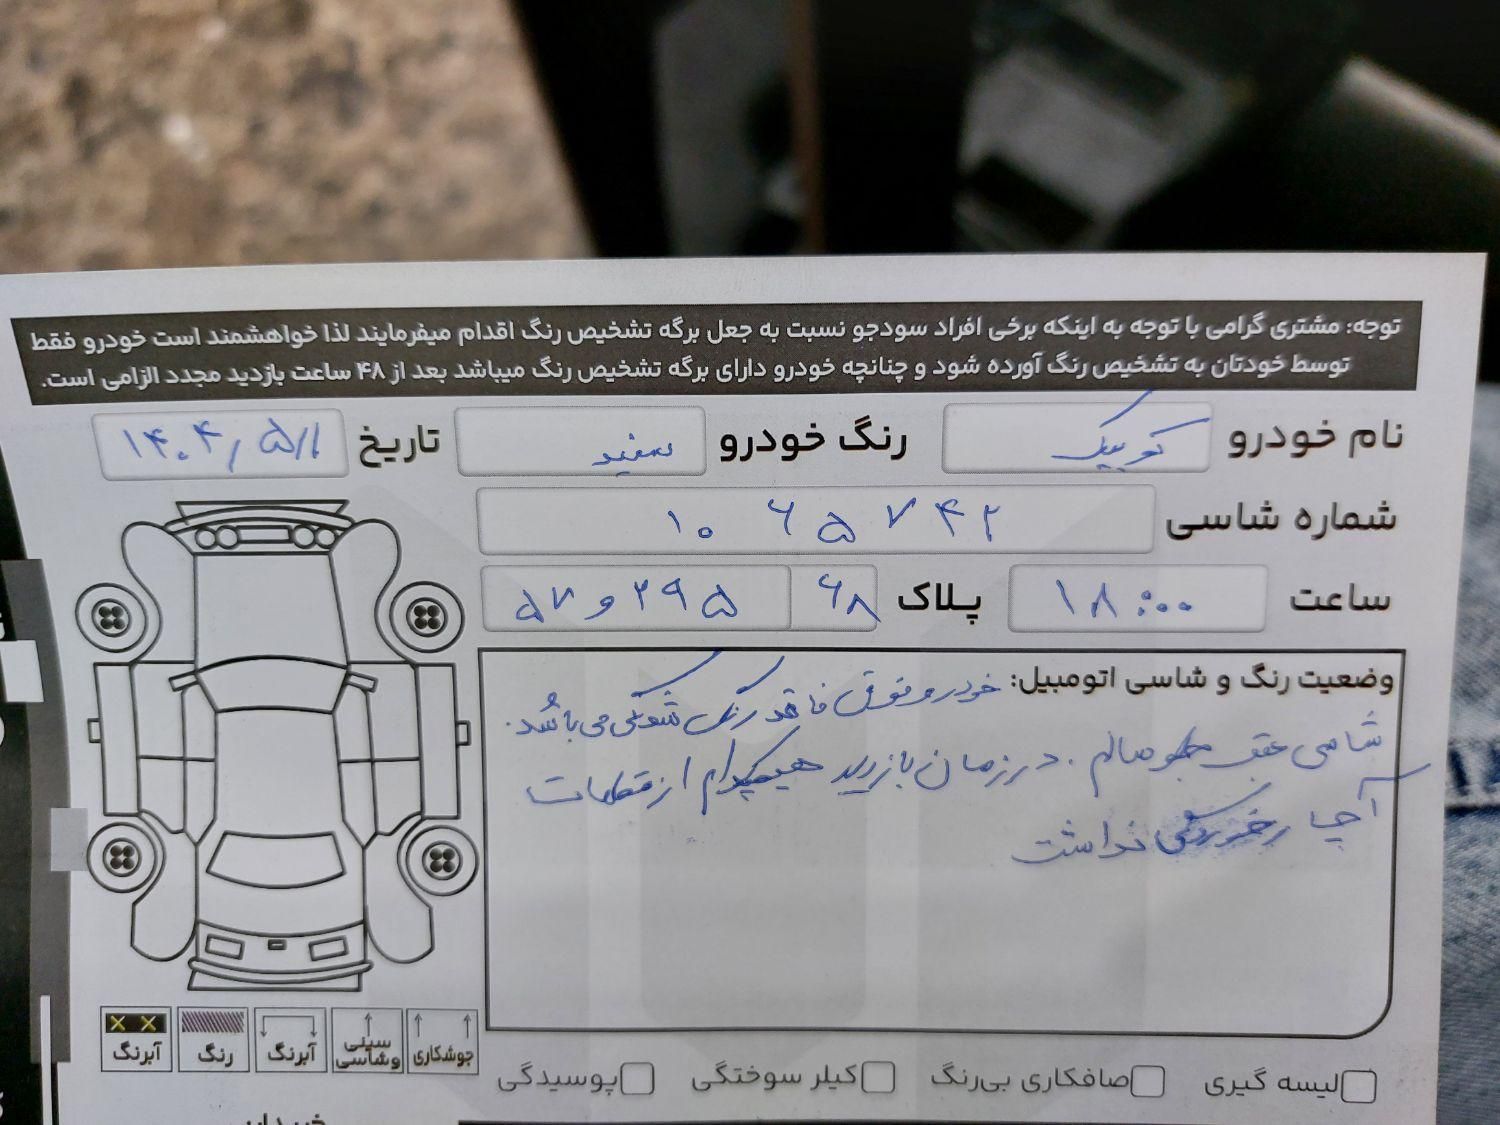 توجه: مشتری گرامی با توجه به اینکه برخی افراد سودجو نسبت به جعل برگه تشخیص رنگ اقدام میفرمایند لذا خواهشمند است خودرو فقط
توسط خودتان به تشخیص رنگ آورده شود و چنانچه خودرو دارای برگه تشخیص رنگ میباشد بعد از ۴۸ ساعت بازدید مجدد الزامی است.
نام خودرو کوییک رنگ خودرو سفید تاریخ ۱۴۰۴/۵/۱
شماره شاسی ۱۰۶۵۷۴۲
ساعت ۱۸:۰۰ پلاک ۶۸ ۵۷ و ۲۹۵
وضعیت رنگ و شاسی اتومبیل: خودرو فوق فاقد رنگ شدگی می باشد.
شاسی عقب جلو سالم . در زمان بازدید هیچکدام از قطعات
آچار خوردگی نداشت
جوشکاری
سینی وشاسی
آبرنگ
رنگ
آبرنگ
لیسه گیری صافکاری بی‌رنگ کیلر سوختگی پوسیدگی